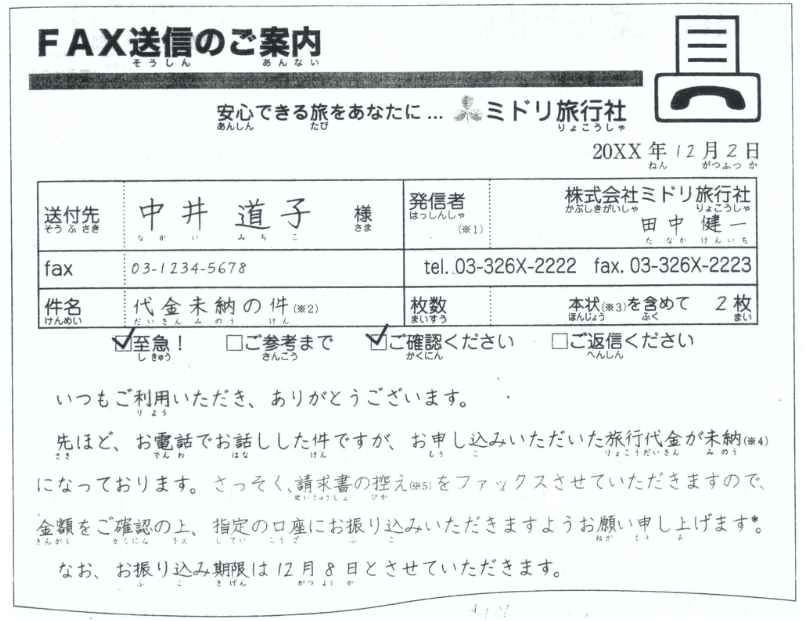 FAX送信のご案内
そうしん あんない
安心できる旅をあなたに… ミドリ旅行社
あんしん たび りょこうしゃ
20XX 年 12月2日
ねん がつふつか
送付先 中井 道子 様 発信者(※1) 株式会社ミドリ旅行社
そうふさき なかい みちこ さま はっしんしゃ かぶしきがいしゃ りょこうしゃ
田中 健一
たなか けんいち
fax 03-1234-5678 tel. 03-326X-2222 fax. 03-326X-2223
件名 代金未納の件(※2) 枚数 本状(※3)を含めて 2枚
けんめい だいきんみのう けん まいすう ほんじょう ふく まい
☑至急! □ご参考まで ☑ご確認ください □ご返信ください
しきゅう さんこう かくにん へんしん
いつもご利用いただき、ありがとうございます。
りよう
先ほど、お電話でお話しした件ですが、お申し込みいただいた旅行代金が未納(※4)
さき でんわ はな けん もう こ りょこうだいきん みのう
になっております。さっそく、請求書の控え(※5)をファックスさせていただきますので、
せいきゅうしょ ひか
金額をご確認の上、指定の口座にお振り込みいただきますようお願い申し上げます*。
きんがく かくにん うえ してい こうざ ふ こ ねが もう あ
なお、お振り込み期限は12月8日とさせていただきます。
ふ こ きげん がつ ようか